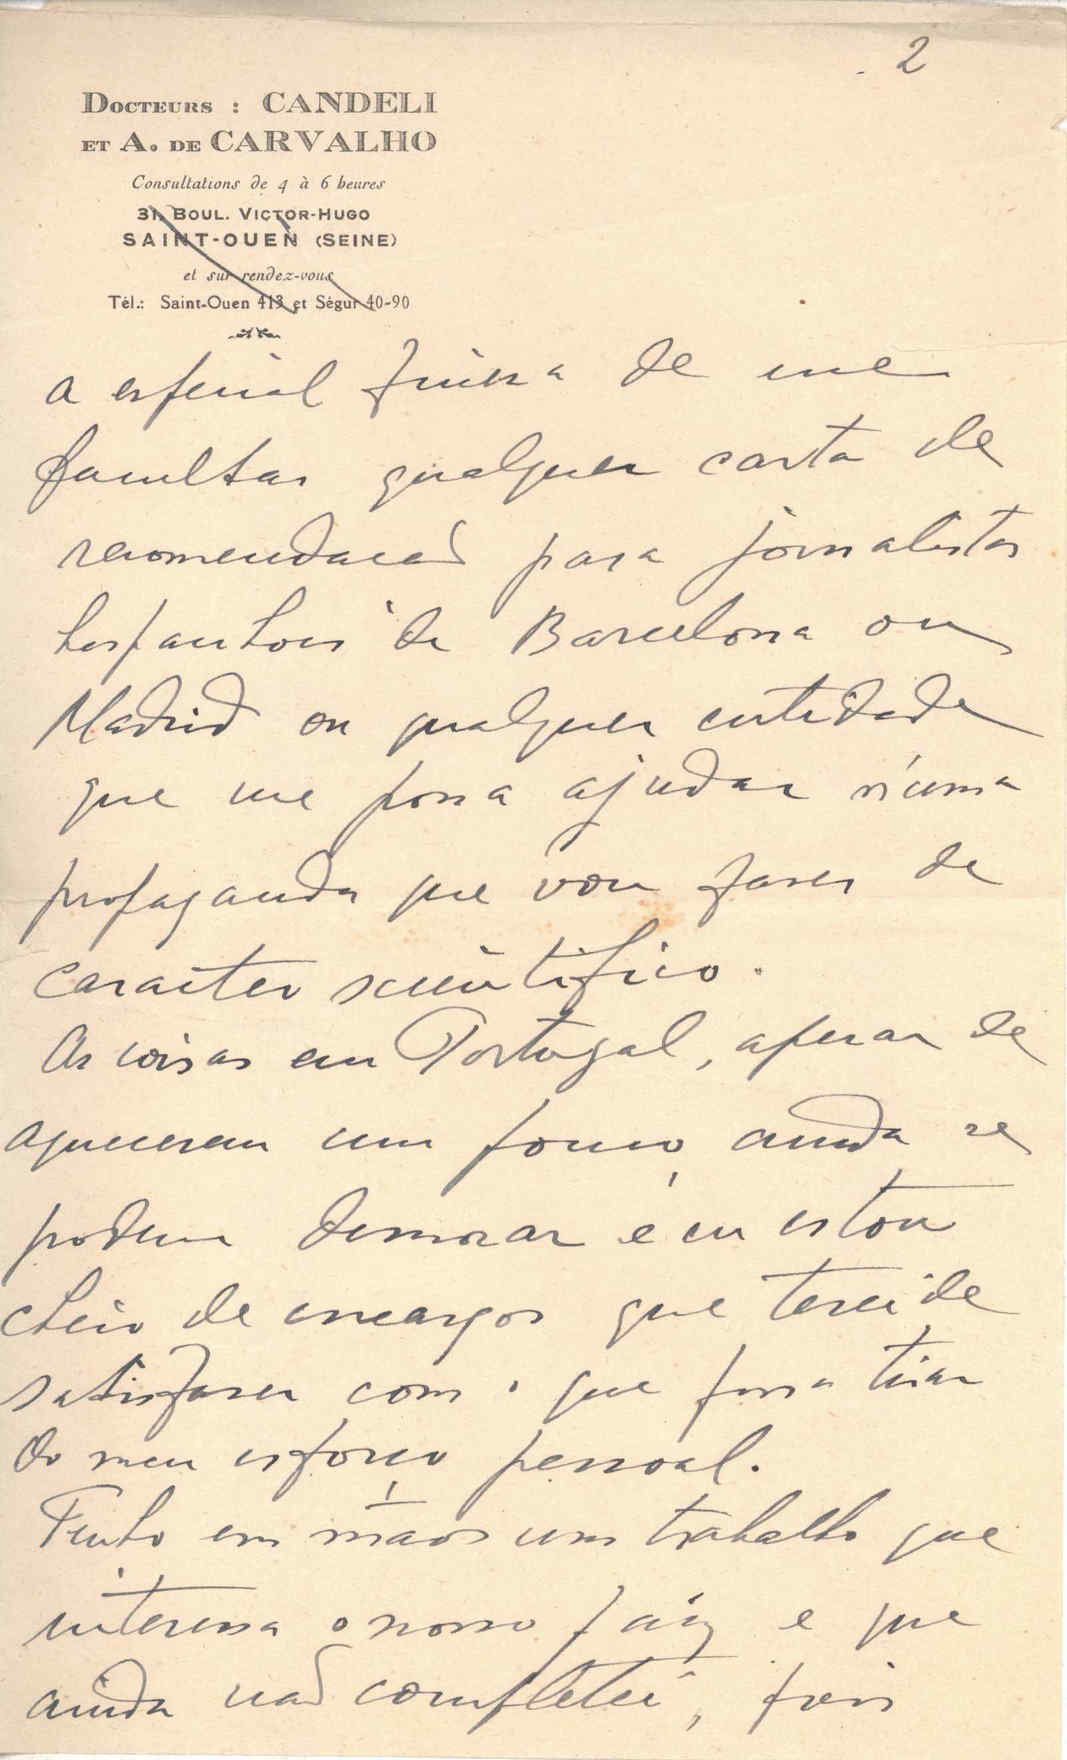 2
Docteurs : CANDELI
et A. de CARVALHO
Consultations de 4 à 6 heures
31, Boul. Victor-Hugo
SAINT-OUEN (SEINE)
et sur rendez-vous
Tél.: Saint-Ouen 413 et Ségur 40-90
a especial fineza de me
facultar qualquer carta de
recomendação para jornalistas
hespanhois de Barcelona ou
Madrid ou qualquer entidade
que me possa ajudar n'uma
propaganda que vou fazer de
caracter scientifico.
As coisas em Portugal, apesar de
aquecerem um pouco, ainda se
podem demorar e eu estou
cheio de encargos que terei de
satisfazer com o que possa tirar
do meu esforço pessoal.
Tenho em mãos um trabalho que
interessa o nosso paiz e que
ainda não completei, pois